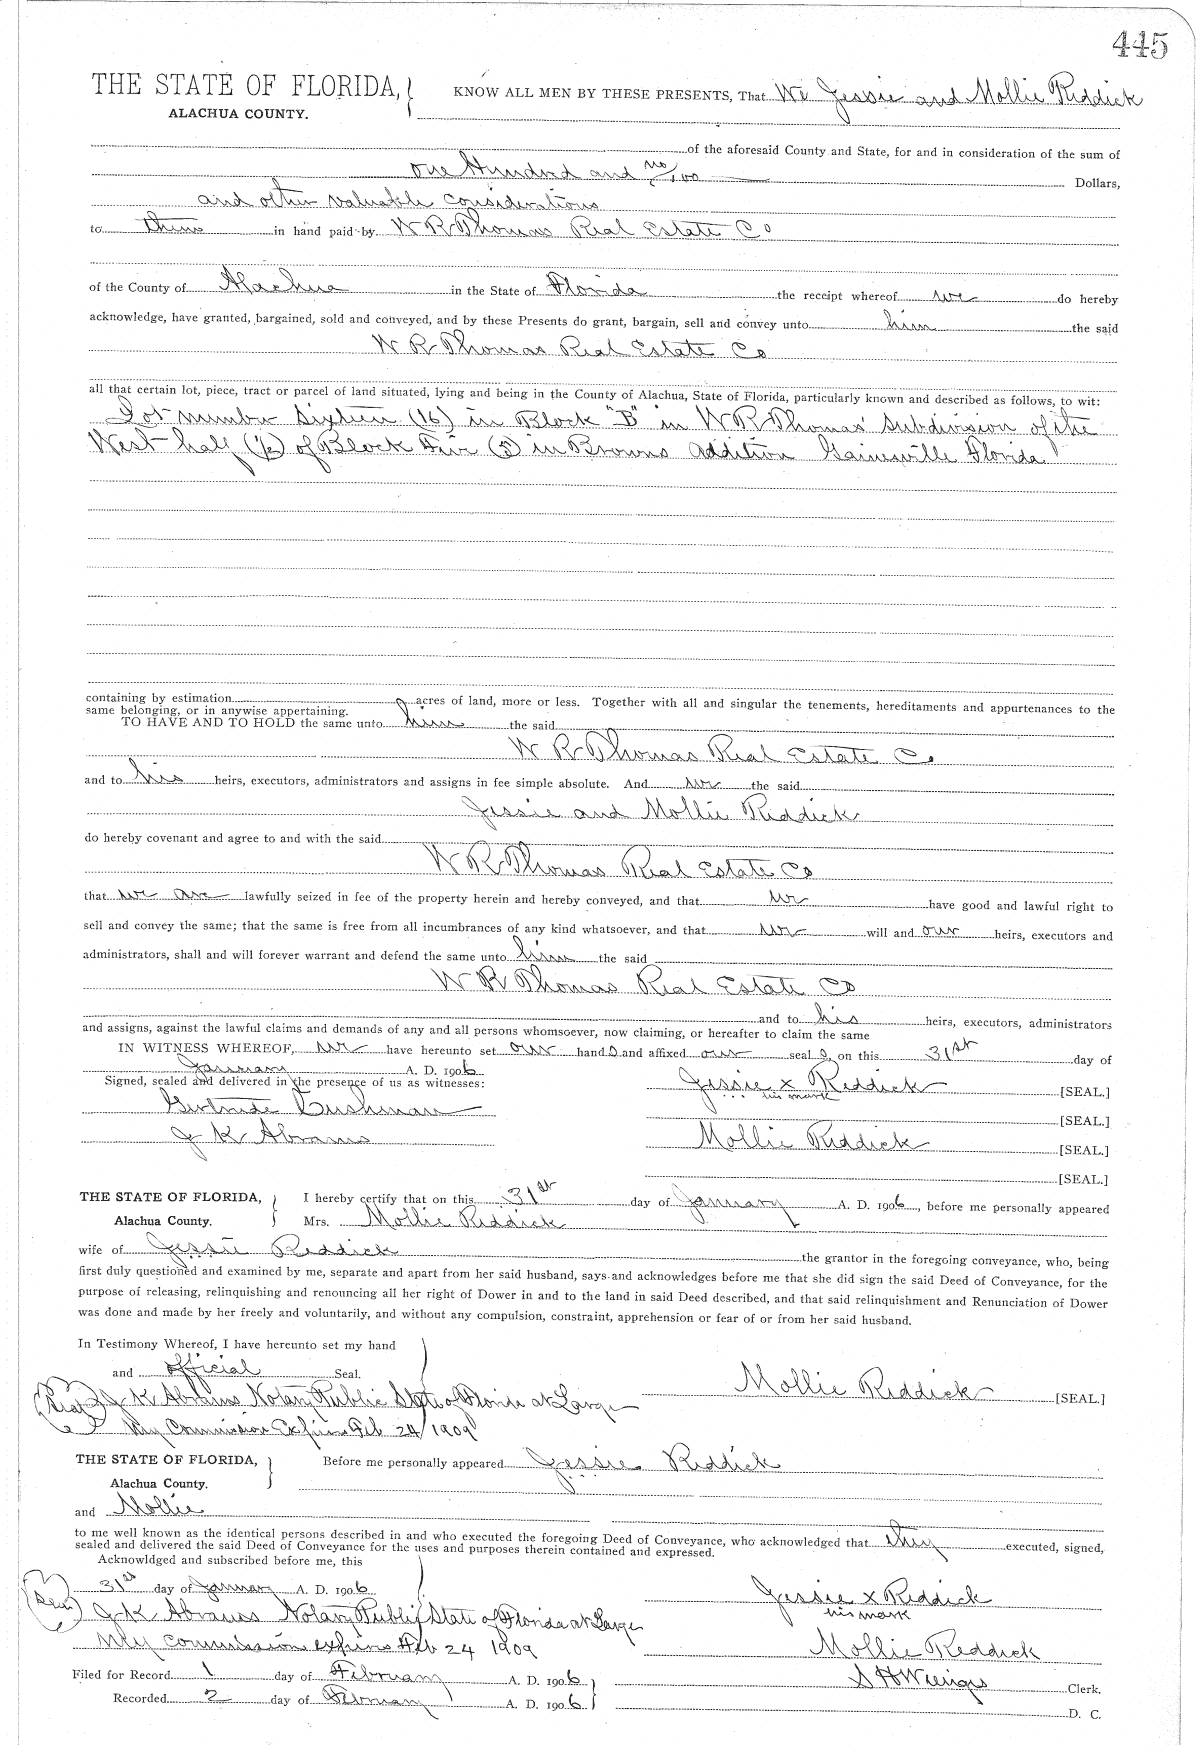 445
THE STATE OF FLORIDA, KNOW ALL MEN BY THESE PRESENTS, That We Jessie and Mollie Reddick
ALACHUA COUNTY.
of the aforesaid County and State, for and in consideration of the sum of
One Hundred and no/100 Dollars,
and other valuable considerations
to them in hand paid by W R Thomas Real Estate Co
of the County of Alachua in the State of Florida the receipt whereof we do hereby
acknowledge, have granted, bargained, sold and conveyed, and by these Presents do grant, bargain, sell and convey unto him the said
W R Thomas Real Estate Co
all that certain lot, piece, tract or parcel of land situated, lying and being in the County of Alachua, State of Florida, particularly known and described as follows, to wit:
Lot number Sixteen (16) in Block "B" in W R Thomas' Subdivision of the
West half (½) of Block Five (5) in Browns addition Gainesville Florida
containing by estimation acres of land, more or less. Together with all and singular the tenements, hereditaments and appurtenances to the
same belonging, or in anywise appertaining.
TO HAVE AND TO HOLD the same unto him the said
W R Thomas Real Estate Co
and to his heirs, executors, administrators and assigns in fee simple absolute. And we the said
Jessie and Mollie Reddick
do hereby covenant and agree to and with the said
W R Thomas Real Estate Co
that we are lawfully seized in fee of the property herein and hereby conveyed, and that we have good and lawful right to
sell and convey the same; that the same is free from all incumbrances of any kind whatsoever, and that we will and our heirs, executors and
administrators, shall and will forever warrant and defend the same unto him the said
W R Thomas Real Estate Co
and to his heirs, executors, administrators
and assigns, against the lawful claims and demands of any and all persons whomsoever, now claiming, or hereafter to claim the same
IN WITNESS WHEREOF, we have hereunto set our hand s and affixed our seal s, on this 31st day of
January A. D. 1906
Signed, sealed and delivered in the presence of us as witnesses: Jessie x Reddick [SEAL.]
his mark
Gertrude Cushman [SEAL.]
J K Abrams Mollie Reddick [SEAL.]
[SEAL.]
THE STATE OF FLORIDA, I hereby certify that on this 31st day of January A. D. 1906, before me personally appeared
Alachua County. Mrs. Mollie Reddick
wife of Jessie Reddick the grantor in the foregoing conveyance, who, being
first duly questioned and examined by me, separate and apart from her said husband, says and acknowledges before me that she did sign the said Deed of Conveyance, for the
purpose of releasing, relinquishing and renouncing all her right of Dower in and to the land in said Deed described, and that said relinquishment and Renunciation of Dower
was done and made by her freely and voluntarily, and without any compulsion, constraint, apprehension or fear of or from her said husband.
In Testimony Whereof, I have hereunto set my hand
and official Seal.
(Seal) J K Abrams Notary Public State of Florida at Large Mollie Reddick [SEAL.]
My Commission Expires Feb 24/1909
THE STATE OF FLORIDA, Before me personally appeared Jessie Reddick
Alachua County.
and Mollie
to me well known as the identical persons described in and who executed the foregoing Deed of Conveyance, who acknowledged that they executed, signed,
sealed and delivered the said Deed of Conveyance for the uses and purposes therein contained and expressed.
Acknowldged and subscribed before me, this
31st day of January A. D. 1906 Jessie x Reddick
his mark
(Seal) J K Abrams Notary Public State of Florida at Large
My commission expires Feb 24 1909 Mollie Reddick
Filed for Record 1 day of February A. D. 1906 S H Wienges Clerk.
Recorded 2 day of February A. D. 1906 D. C.